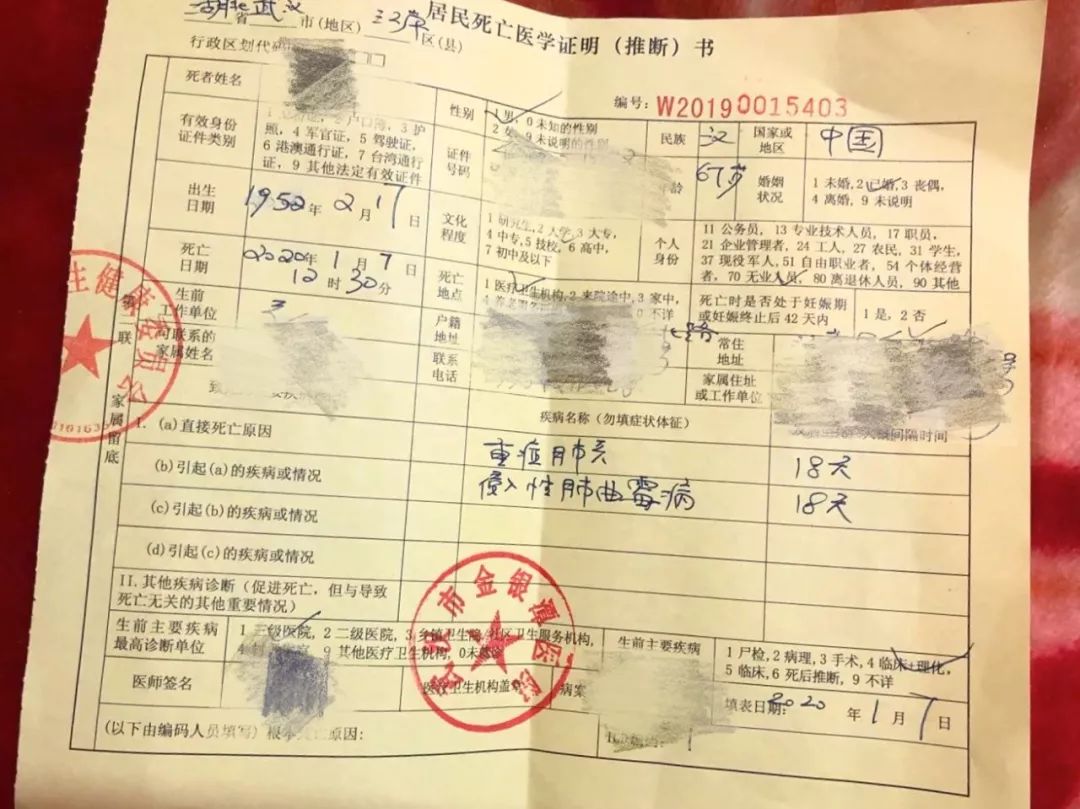 湖北省武汉市(地区)江岸区(县)
居民死亡医学证明(推断)书
行政区划代码
编号:W20190015403
死者姓名
性别
1 男,0 未知的性别
2 女,9 未说明的性别
民族
汉
国家或
地区
中国
有效身份
证件类别
户口簿,3 护
照,4 军官证,5 驾驶证,
6 港澳通行证,7 台湾通行
证,9 其他法定有效证件
证件
号码
年龄
67岁
婚姻
状况
1 未婚,2 已婚,3 丧偶,
4 离婚,9 未说明
出生
日期
1952年2月17日
文化
程度
1 研究生,2 大学,3 大专,
4 中专,5 技校,6 高中,
7 初中及以下
个人
身份
11 公务员,13 专业技术人员,17 职员,
21 企业管理者,24 工人,27 农民,31 学生,
37 现役军人,51 自由职业者,54 个体经营
者,70 无业人员,80 离退休人员,90 其他
死亡
日期
2020年1月7日
12时30分
死亡
地点
1 医疗卫生机构,2 来院途中,3 家中,
4 养老服务 0 不详
死亡时是否处于妊娠期
或妊娠终止后 42 天内
1 是,2 否
生前
工作单位
无
户籍
地址
路
常住
地址
号
可联系的
家属姓名
联系
电话
家属住址
或工作单位
疾病名称(勿填症状体征)
间隔时间
I. (a)直接死亡原因
重症肺炎
18天
(b)引起(a)的疾病或情况
侵入性肺曲霉病
18天
(c)引起(b)的疾病或情况
(d)引起(c)的疾病或情况
II.其他疾病诊断(促进死亡,但与导致
死亡无关的其他重要情况)
生前主要疾病
最高诊断单位
1 三级医院,2 二级医院,3 乡镇卫生院/社区卫生服务机构,
9 其他医疗卫生机构,0 未就诊
生前主要疾病
1 尸检,2 病理,3 手术,4 临床+理化,
5 临床,6 死后推断,9 不详
医师签名
医疗卫生机构盖章
病案
填表日期:2020年1月7日
(以下由编码人员填写)根本死亡原因:
第
联
家属留底
生健康委员会
市金银潭医院